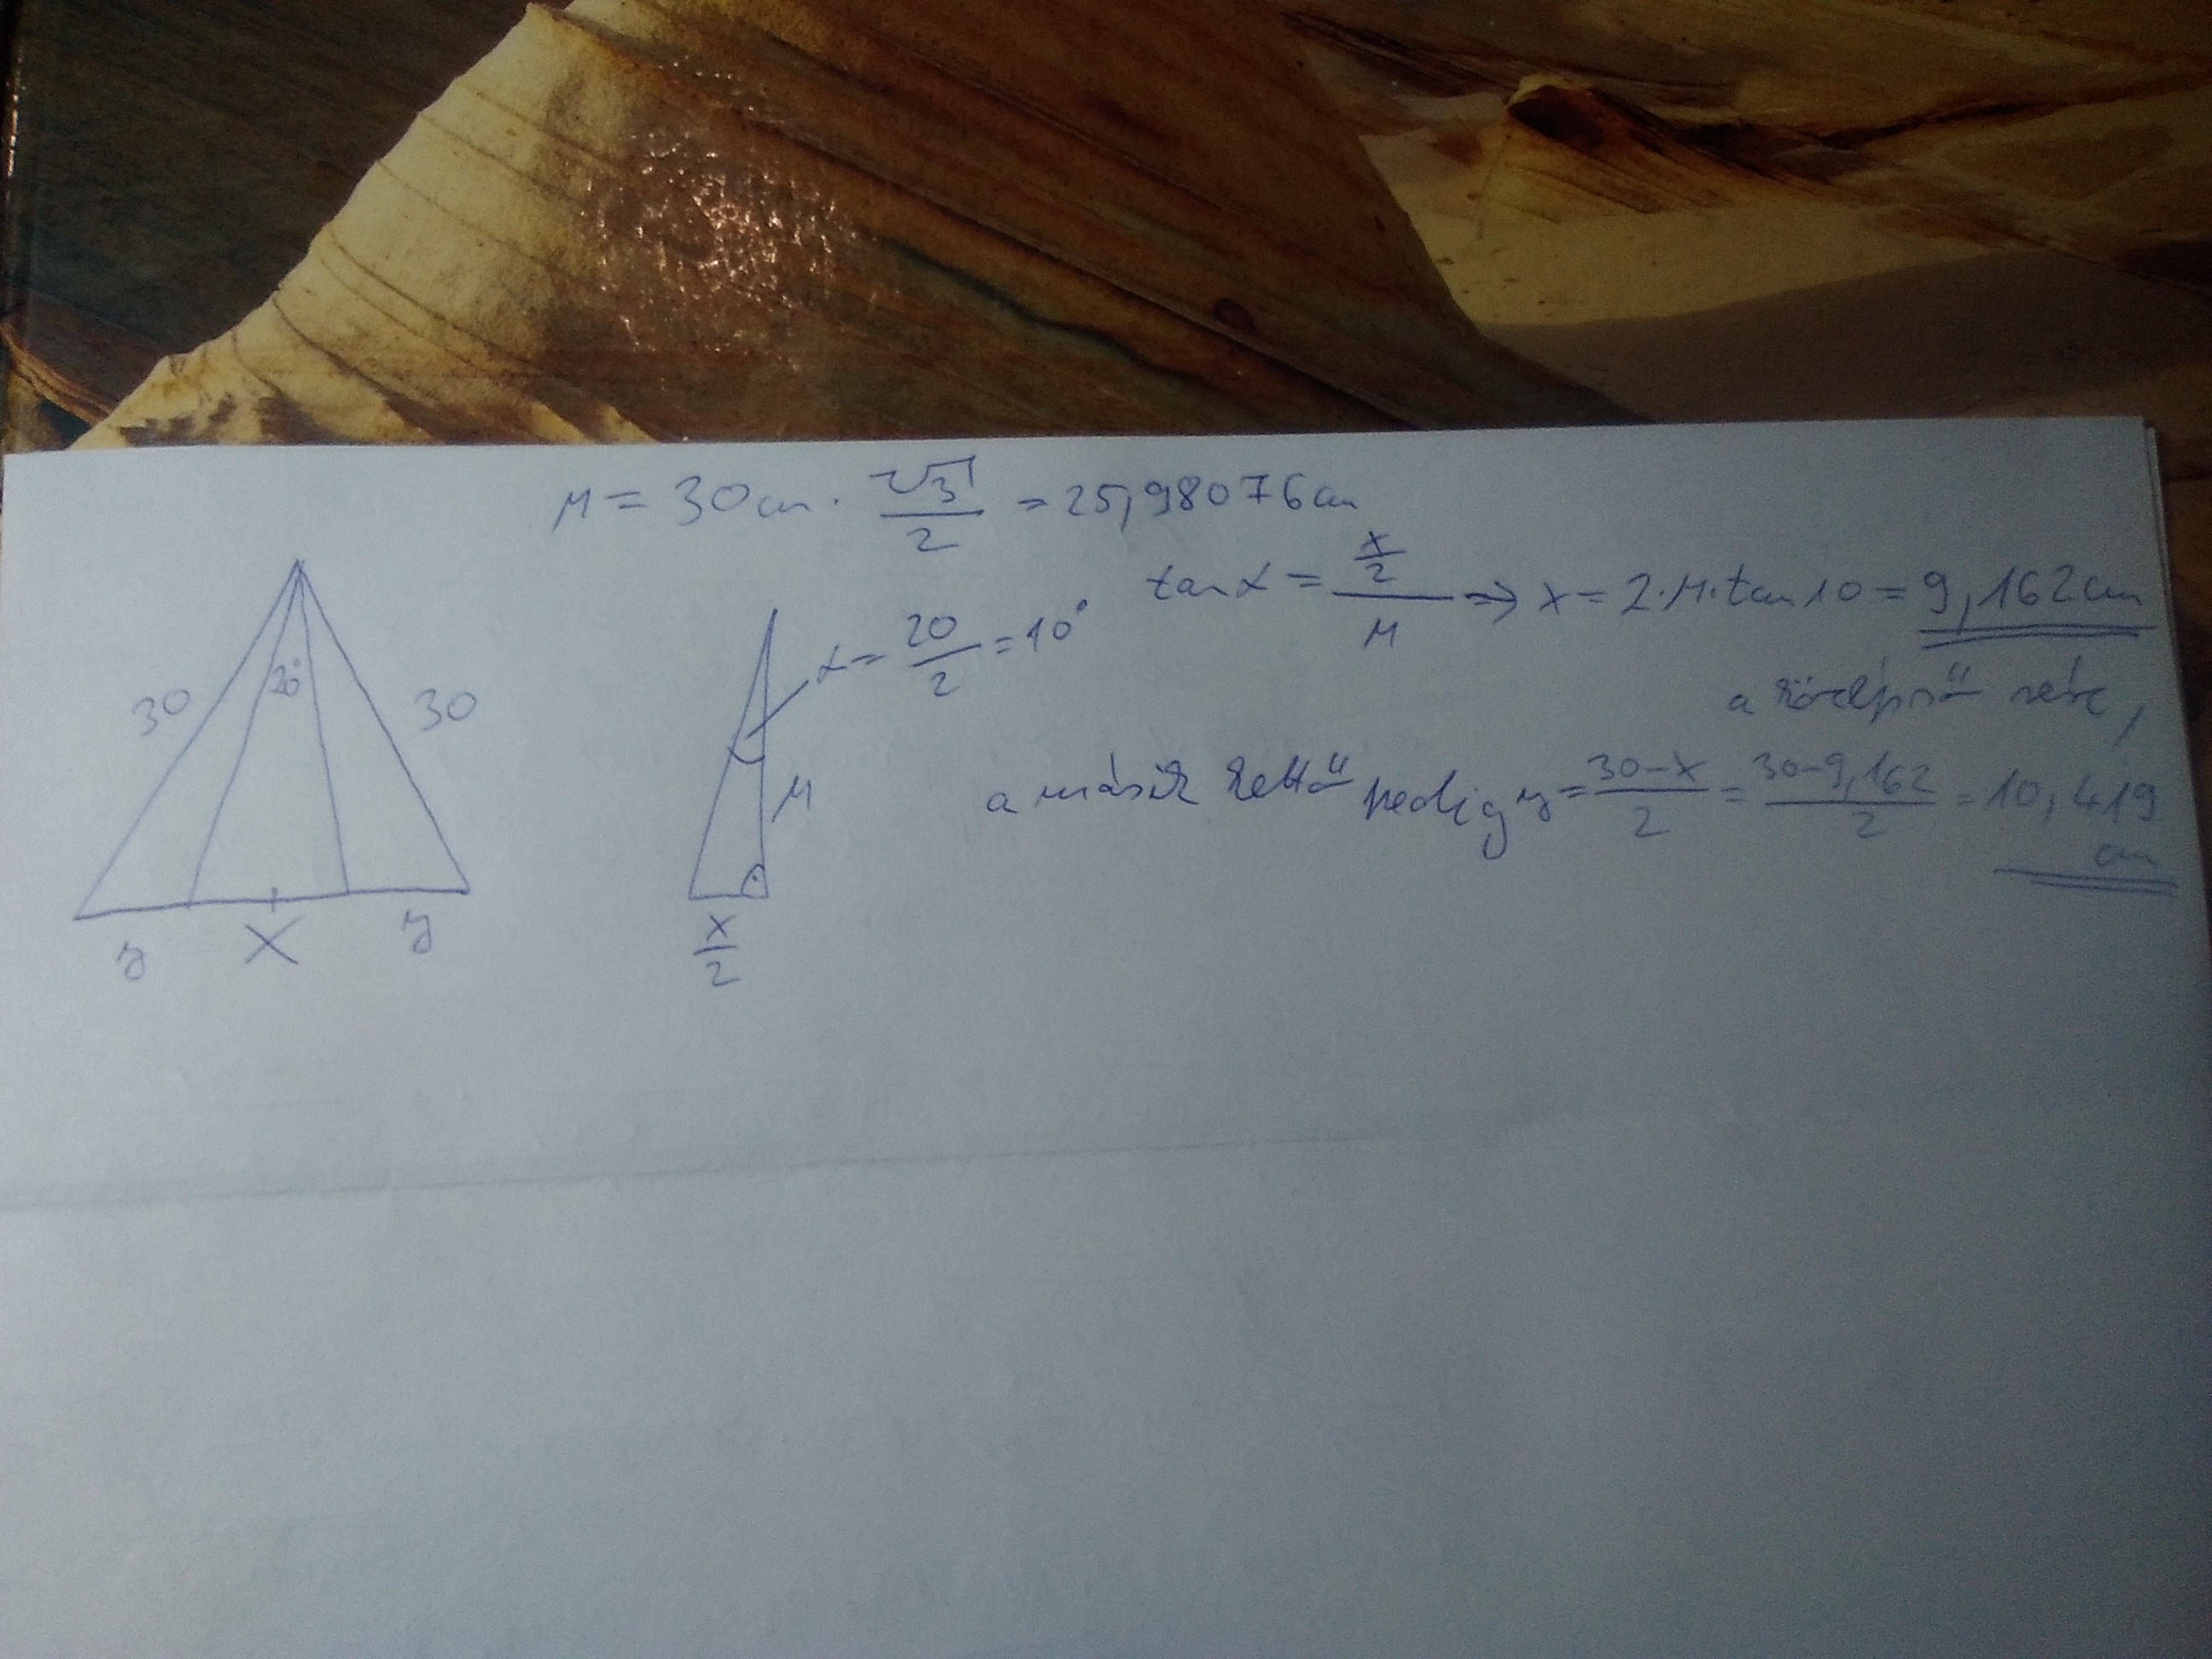 M = 30cm · √3/2 = 25,98076cm
tan α = (x/2)/M ⇒ x = 2·M·tan10 = 9,162cm
α = 20/2 = 10°
30 20° 30
a középső rész,
M
a másik kettő pedig y = (30-x)/2 = (30-9,162)/2 = 10,419
cm
y x y
x/2